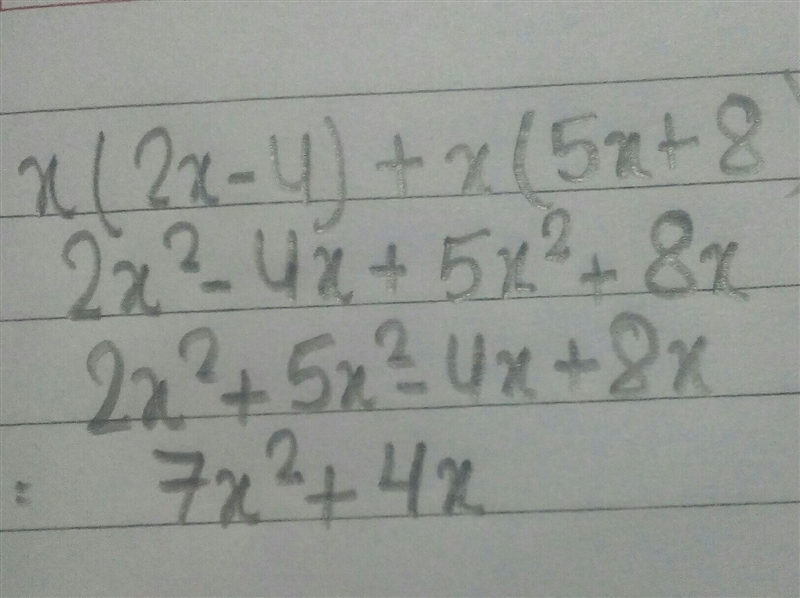 x(2x-4)+x(5x+8)
2x²-4x+5x²+8x
2x²+5x²-4x+8x
= 7x²+4x